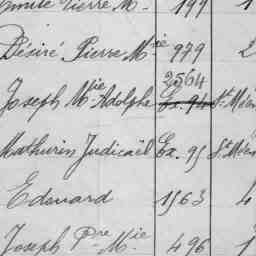 Pierre M. 199 1
Désiré Pierre Mie 979 2
2564
Joseph Mie Adolphe Ex. 94 St Méen
Mathurin Judicaël Ex. 95 St Méen
Edouard 1563 4
Joseph Pre Mie 496 1